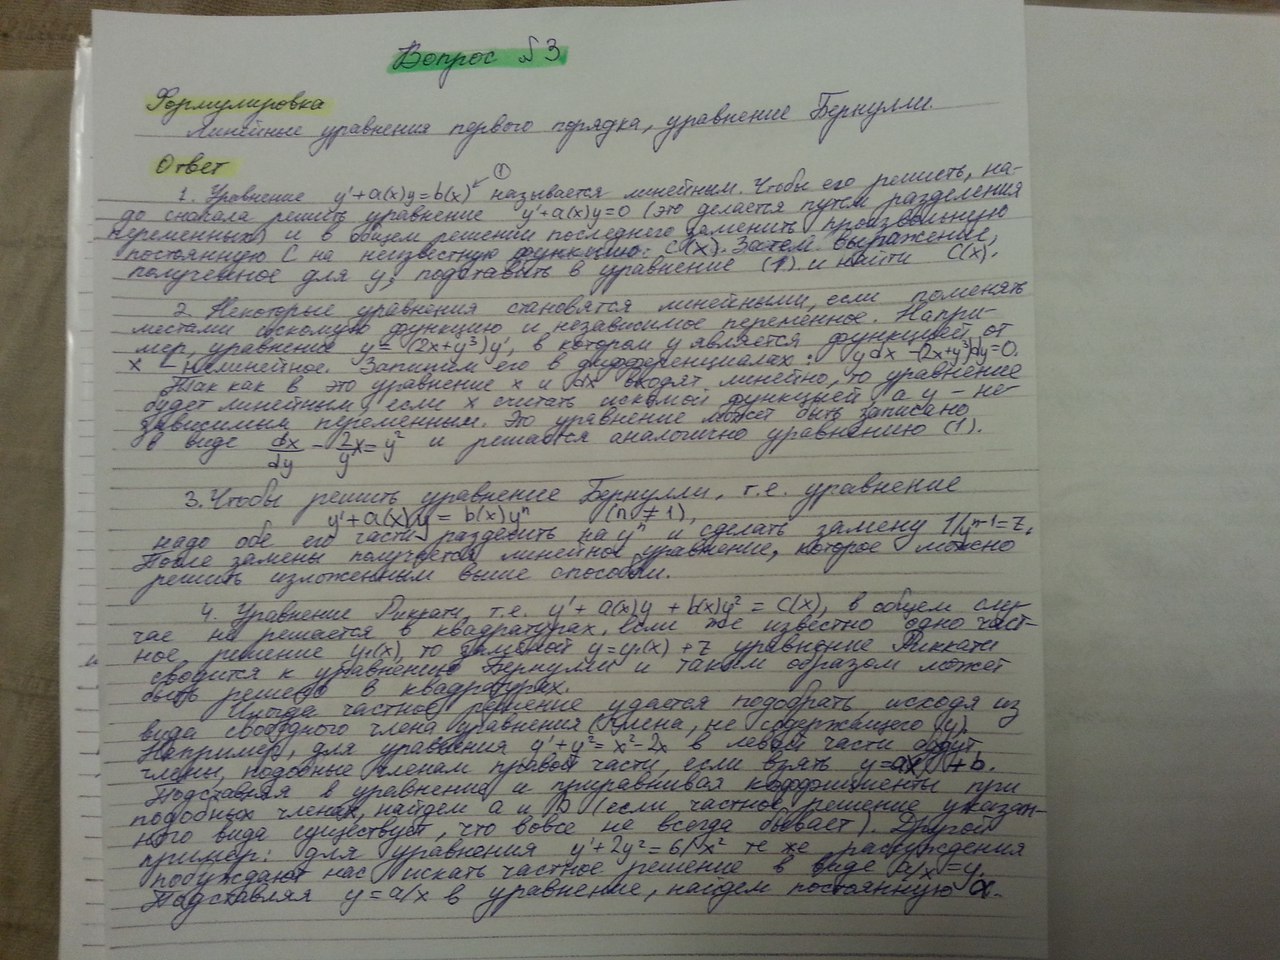 Вопрос №3
Формулировка
Линейные уравнения первого порядка, уравнение Бернулли.
Ответ
①
1. Уравнение y'+a(x)y=b(x) называется линейным. Чтобы его решить, на-
до сначала решить уравнение y'+a(x)y=0 (это делается путем разделения
переменных) и в общем решении последнего заменить произвольную
постоянную C на неизвестную функцию C(x). Затем выражение,
полученное для y, подставить в уравнение (1) и найти C(x).
2. Некоторые уравнения становятся линейными, если поменять
местами искомую функцию и независимое переменное. Напри-
мер, уравнение y = (2x+y³)y', в котором y является функцией от
x – нелинейное. Запишем его в дифференциалах: ydx-(2x+y³)dy=0.
Так как в это уравнение x и dx входят линейно, то уравнение
будет линейным, если x считать искомой функцией, а y – не-
зависимым переменным. Это уравнение может быть записано
в виде dx/dy - 2/y x = y² и решается аналогично уравнению (1).
3. Чтобы решить уравнение Бернулли, т.е. уравнение
y'+a(x)y = b(x)yⁿ (n ≠ 1),
надо обе его части разделить на yⁿ и сделать замену 1/yⁿ⁻¹=z.
После замены получается линейное уравнение, которое можно
решить изложенным выше способом.
4. Уравнение Риккати, т.е. y' + a(x)y + b(x)y² = c(x), в общем слу-
чае не решается в квадратурах, если же известно одно част-
ное решение y₁(x), то заменой y=y₁(x) + z уравнение Риккати
сводится к уравнению Бернулли и таким образом может
быть решено в квадратурах.
Иногда частное решение удается подобрать, исходя из
вида свободного члена уравнения (члена, не содержащего y).
Например, для уравнения y'+y²=x²-2x в левой части будут
члены, подобные членам правой части, если взять y=ax+b.
Подставляя в уравнение и приравнивая коэффициенты при
подобных членах, найдем a и b (если частное решение указан-
ного вида существует, что вовсе не всегда бывает). Другой
пример: для уравнения y'+2y²=6/x² те же рассуждения
побуждают нас искать частное решение в виде a/x = y.
Подставляя y=a/x в уравнение, найдем постоянную a.